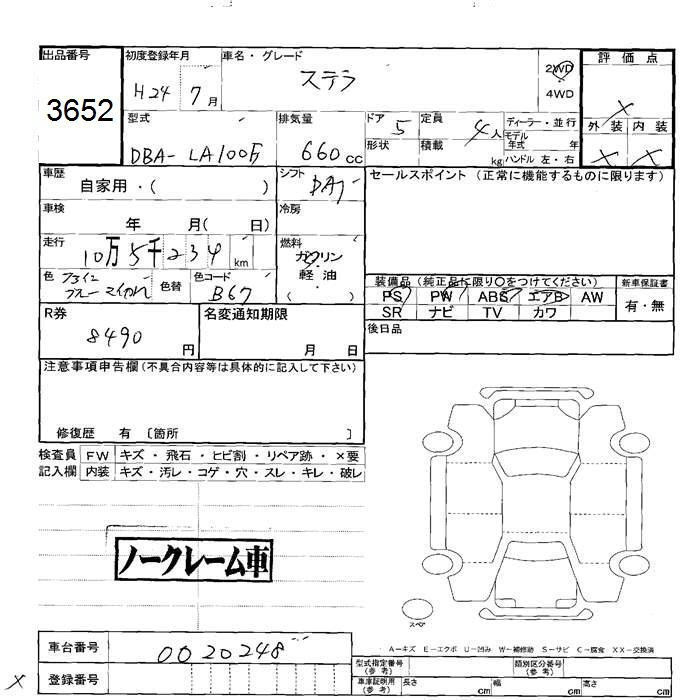 出品番号
3652
初度登録年月
H24 7月
車名・グレード
ステラ
2WD
4WD
評価点
×
外装 内装
× ×
型式
DBA-LA100F
排気量
660cc
ドア
5
定員
4人
形状
積載
kg
ディーラー・並行
モデル年式 年
ハンドル 左・右
車歴
自家用・( )
シフト
DAT
セールスポイント (正常に機能するものに限ります)
車検
年 月( 日)
冷房
走行
10万5千234km
燃料
ガソリン
軽油
( )
色
ブルーマイカ
色替
色コード
B67
装備品 (純正品に限り〇をつけてください)
PS PW ABS エアB AW
SR ナビ TV カワ
新車保証書
有・無
R券
8490円
名変通知期限
月 日
後日品
注意事項申告欄 (不具合内容等は具体的に記入して下さい)
修復歴 有 〔箇所 〕
検査員記入欄
FW キズ・飛石・ヒビ割・リペア跡・×要
内装 キズ・汚レ・コゲ・穴・スレ・キレ・破レ
ノークレーム車
スペア
A-キズ E-エクボ U-凹み W-補修跡 S-サビ C-腐食 XX-交換済
車台番号
0020248
× 登録番号
型式指定番号(参考)
類別区分番号(参考)
車庫証明用(参考)
長さ cm 幅 cm 高さ cm